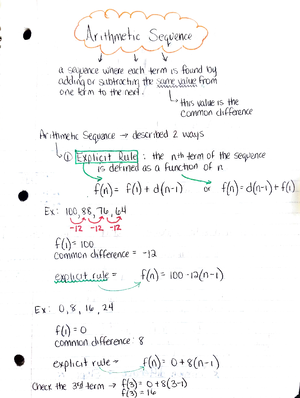 Arithmetic Sequence
a sequence where each term is found by
adding or subtracting the same value from
one term to the next.
this value is the
common difference
Arithmetic Sequence → described 2 ways
① Explicit Rule : the nth term of the sequence
is defined as a function of n
f(n) = f(1) + d(n-1) or f(n) = d(n-1) + f(1)
Ex: 100, 88, 76, 64
-12 -12 -12
f(1) = 100
common difference = -12
explicit rule = f(n) = 100 - 12(n-1)
Ex: 0, 8, 16, 24
f(1) = 0
common difference: 8
explicit rule → f(n) = 0 + 8(n-1)
Check the 3rd term → f(3) = 0 + 8(3-1)
f(3) = 16